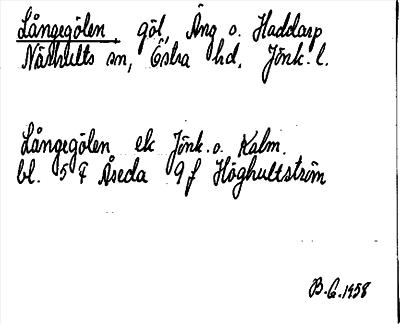 Långegölen, göl, Äng o. Haddarp
Näshults sn, Östra hd, Jönk. l.
Långegölen ek Jönk. o. Kalm.
bl. 5 F Åseda 9 f Höghultström
B.G. 1958